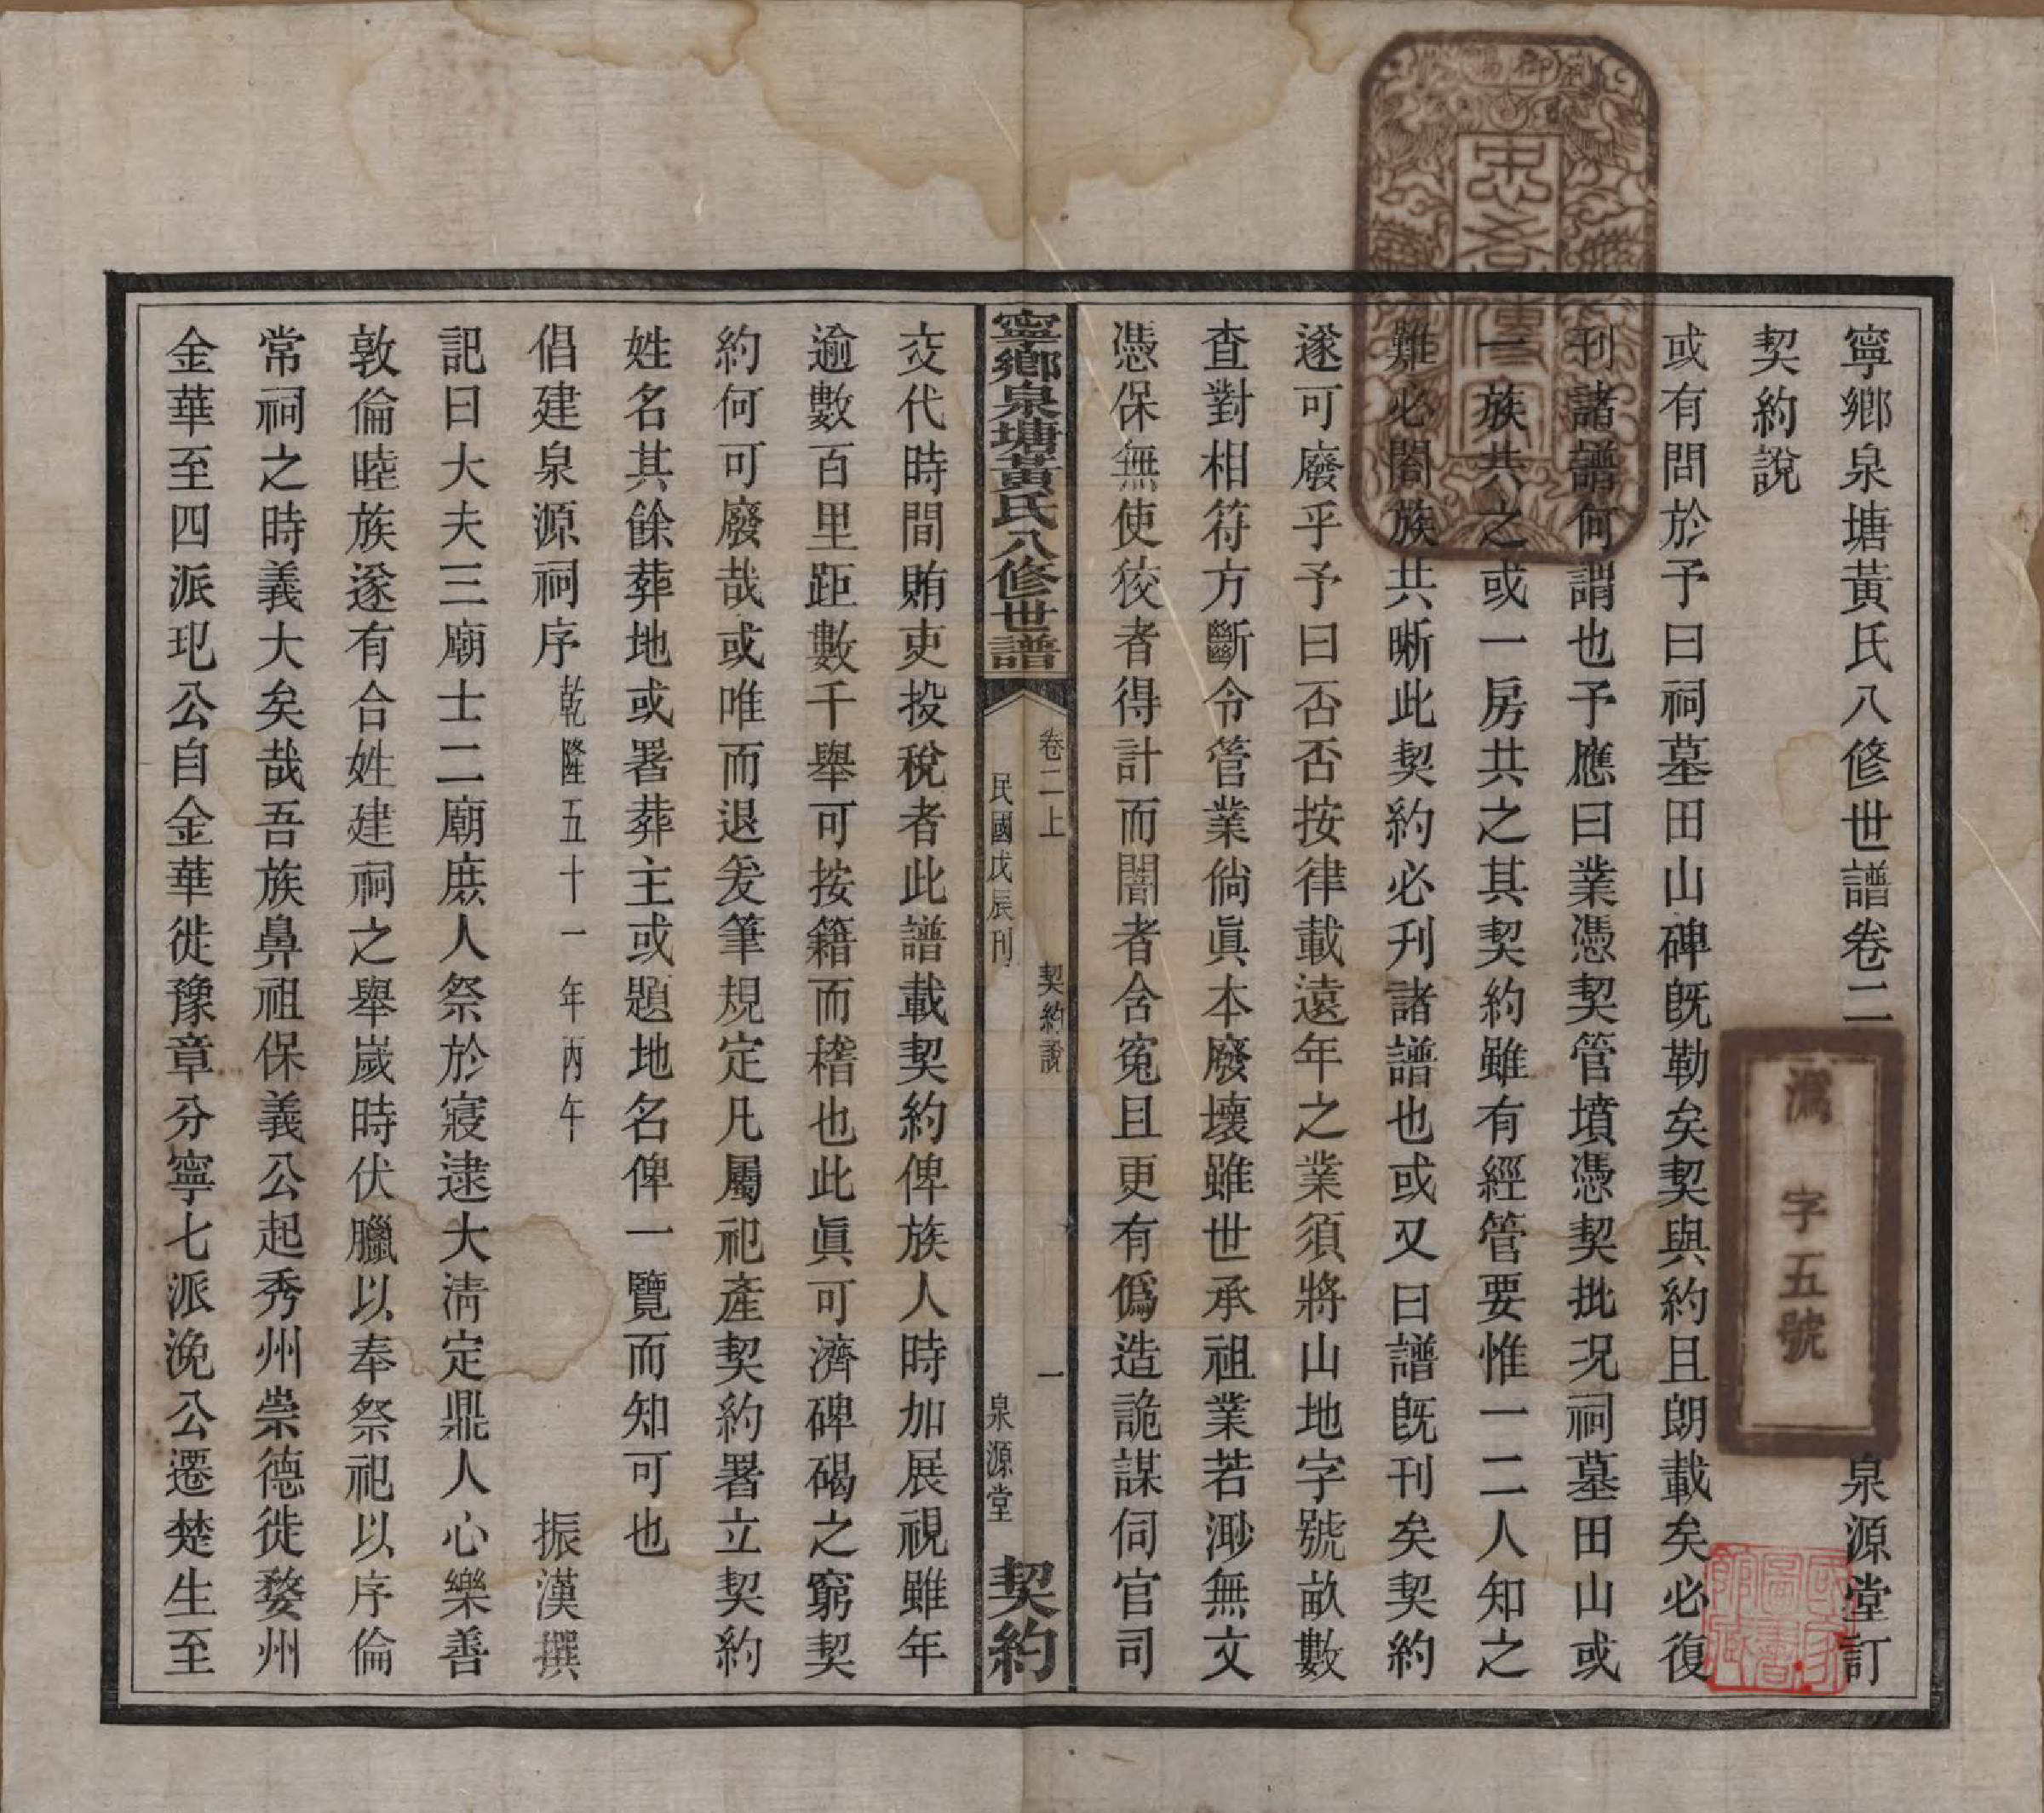 寧鄉泉塘黃氏八修世譜卷二
泉源堂訂
契約說
或有問於予曰祠墓田山碑旣勒矣契與約且朗載矣必復
刊諸譜何謂也予應曰業憑契管墳憑契批况祠墓田山或
一族共之或一房共之其契約雖有經管要惟一二人知之
難必闔族共晰此契約必刋諸譜也或又曰譜旣刊矣契約
遂可廢乎予曰否否按律載遠年之業須將山地字號畝數
查對相符方斷令管業倘眞本廢壞雖世承祖業若渺無文
憑保無使狡者得計而闇者含寃且更有僞造詭謀伺官司
寧鄉泉塘黃氏八修世譜
卷二上
契約說
一
民國戊辰刊
泉源堂
契約
交代時間賄吏投稅者此譜載契約俾族人時加展視雖年
逾數百里距數千舉可按籍而稽也此眞可濟碑碣之窮契
約何可廢哉或唯而退爰筆規定凡屬祀產契約署立契約
姓名其餘葬地或署葬主或題地名俾一覽而知可也
倡建泉源祠序 乾隆五十一年丙午
振漢撰
記曰大夫三廟士二廟庶人祭於寢逮大淸定鼎人心樂善
敦倫睦族遂有合姓建祠之舉歲時伏臘以奉祭祀以序倫
常祠之時義大矣哉吾族鼻祖保義公起秀州崇德徙婺州
金華至四派玘公自金華徙豫章分寧七派浼公遷楚生至
忠孝傳家
御賜
潙字五號